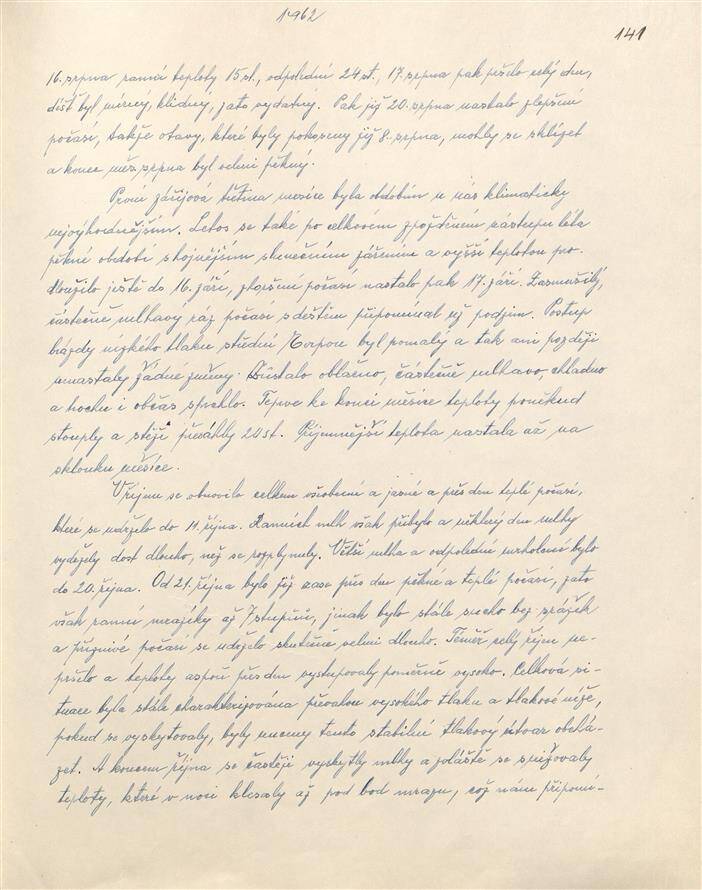 1962
141
16. srpna ranní teploty 15 st., odpolední 24 st., 17. srpna pak pršelo celý den,
déšť byl mírný, klidný, zato vydatný. Pak již 20. srpna nastalo zlepšení
počasí, takže otavy, které byly pokoseny již 8. srpna, mohly se sklízet
a konec měs. srpna byl velmi pěkný.
První zářijová třetina měsíce byla obdobím u nás klimaticky
nejvýhodnějším. Letos se také po celkovém zpoždění nástupu léta
pěkné období s hojnějším slunečním zářením a vyšší teplotou pro-
dloužilo ještě do 16. září, zhoršení počasí nastalo pak 17. září. Zasmušilý,
částečně mlhavý ráz počasí s deštěm připomínal už podzim. Postup
brázdy nízkého tlaku střední Evropou byl pomalý a tak ani později
nenastaly žádné změny. Zůstalo oblačno, částečně mlhavo, chladno
a trochu i občas sprchlo. Teprve ke konci měsíce teploty poněkud
stouply a stěží přesáhly 20 st. Příjemnější teplota nastala až na
sklonku měsíce.
V říjnu se obnovilo celkem všeobecné a jasné a přes den teplé počasí,
které se udrželo do 11. října. Ranních mlh však přibylo a některý den mlhy
vydržely dost dlouho, než se rozplynuly. Větší mlha a odpolední mrholení bylo
do 20. října. Od 21. října bylo již zase přes den pěkné a teplé počasí, zato
však ranní mrazíky až 7 stupňů, jinak bylo stále sucho bez srážek
a příznivé počasí se udrželo skutečně velmi dlouho. Téměř celý říjen ne-
pršelo a teploty aspoň přes den vystupovaly poměrně vysoko. Celková si-
tuace byla stále charakterizována převahou vysokého tlaku a tlakové níže,
pokud se vyskytovaly, byly nuceny tento stabilní tlakový útvar obchá-
zet. A koncem října se častěji vyskytly mlhy a zvláště se snižovaly
teploty, které v noci klesaly až pod bod mrazu, což nám připomí-